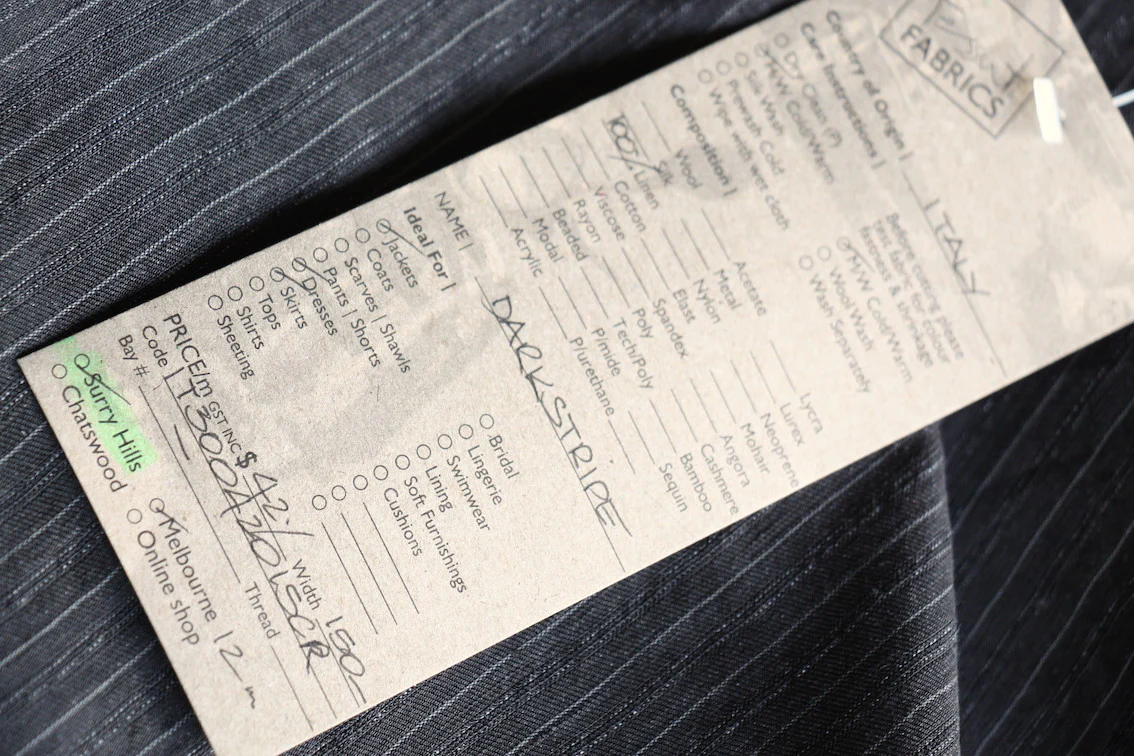 FABRICS
Country of Origin | ITALY
Care Instructions |
Before cutting please
test fabric for colour
fastness & shrinkage
Dry Clean (P)
H/W Cold/Warm
M/W Cold/Warm
Silk Wash
Wool Wash
Prewash Cold
Wash Separately
Wipe with wet cloth
Composition |
Wool
Acetate
Lycra
Silk
Metal
Lurex
100% Linen
Nylon
Neoprene
Cotton
Elast
Mohair
Viscose
Spandex
Angora
Rayon
Poly
Cashmere
Beaded
Tech/Poly
Bamboo
Modal
P/mide
Sequin
Acrylic
P/urethane
NAME | DARK STRIPE
Ideal For |
Jackets
Bridal
Coats
Lingerie
Scarves | Shawls
Swimwear
Pants | Shorts
Lining
Dresses
Soft Furnishings
Skirts
Cushions
Tops
Shirts
Sheeting
PRICE/m GST INC $ 42.-/ Width 150
Code |
Bay # Thread
Surry Hills
Melbourne 12 m
Chatswood
Online shop